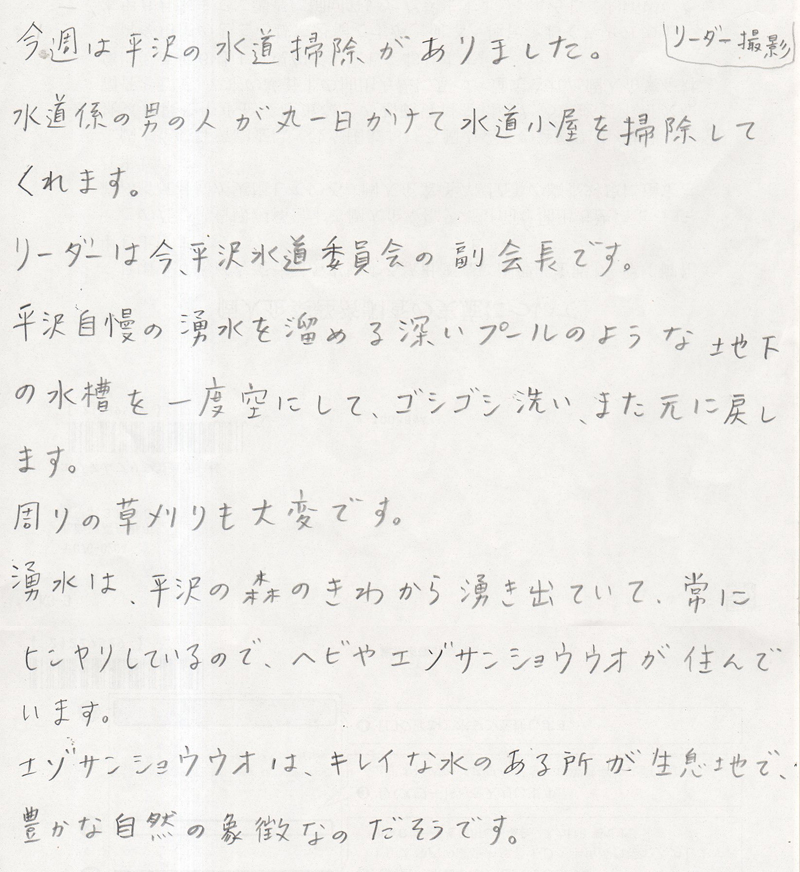 今週は平沢の水道掃除がありました。
リーダー撮影
水道係の男の人が丸一日かけて水道小屋を掃除して
くれます。
リーダーは今、平沢水道委員会の副会長です。
平沢自慢の湧水を溜める深いプールのような地下
の水槽を一度空にして、ゴシゴシ洗い、また元に戻し
ます。
周りの草刈りも大変です。
湧水は、平沢の森のきわから湧き出ていて、常に
ヒンヤリしているので、ヘビやエゾサンショウウオが住んで
います。
エゾサンショウウオは、キレイな水のある所が生息地で、
豊かな自然の象徴なのだそうです。